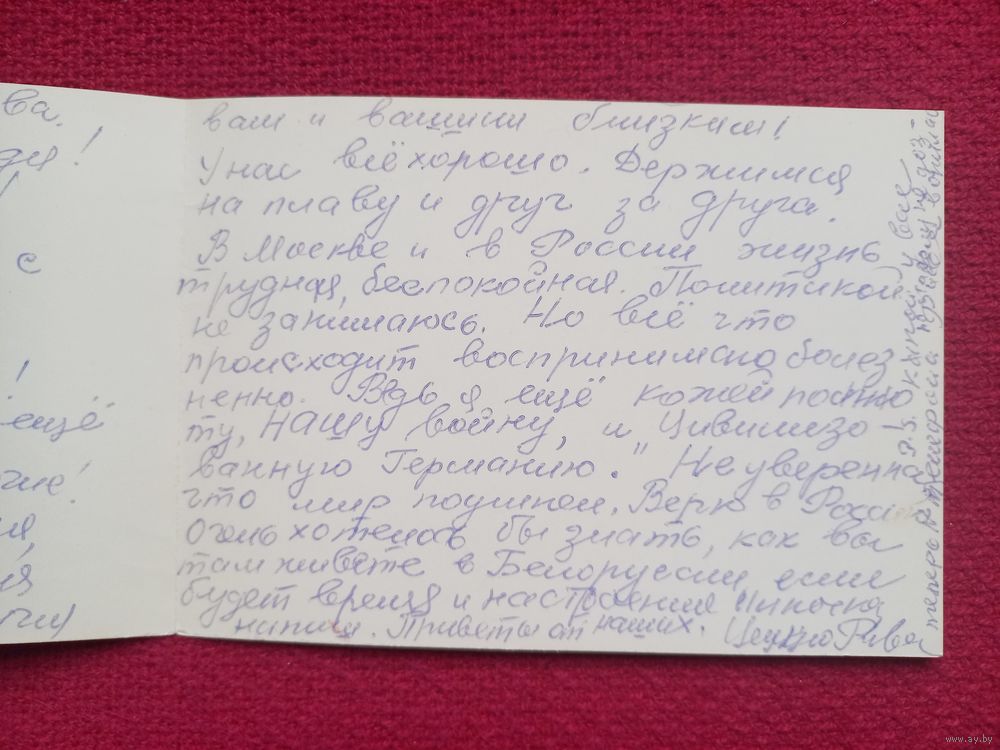 ва.
с
!
ещё
вам и вашим близким!
У нас всё хорошо. Держимся
на плаву и друг за друга.
В Москве и в России жизнь
трудная, беспокойная. Политикой
не занимаюсь. Но всё что
происходит воспринимаю болез
ненно. Ведь я ещё кожей помню
ту, нашу войну, и "Цивилизо-
ванную Германию." Не уверенна
что мир поумнел. Верю в Росси
Очень хотелось бы знать, как вы
там живёте в Белоруссии, если
будет время и настроение
напиши. Приветы от наших. Целую Рива
P.S.
у вас
теперь
www.ay.by